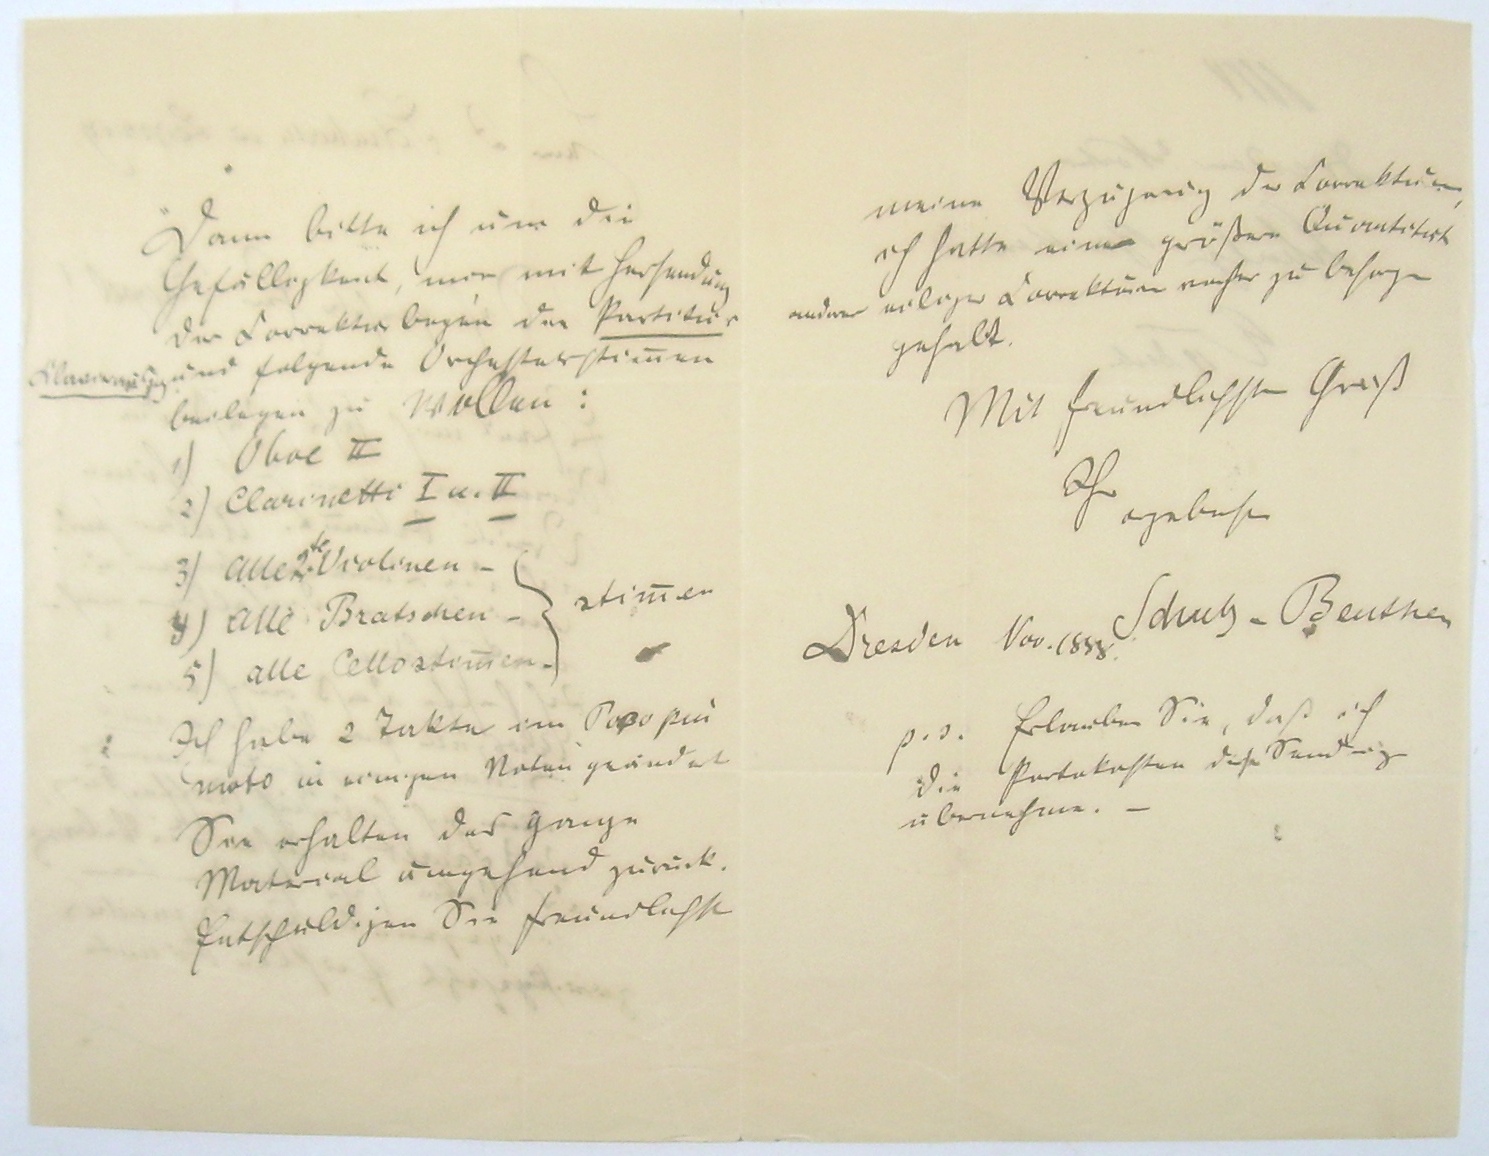 Dann bitte ich um die
Gefälligkeit, mir mit Hersendung
der Correkturbogen der Partitur
Clavierauszug und folgende Orchesterstim̅en
beilegen zu wollen:
1) Oboe II
2) Clarinetti I u. II
3) alle 2te Violinen –
4) alle Bratschen – stim̅en
5) alle Cellostim̅en –
Ich habe 2 Takte im Poco piu
moto in einigen Noten geändert
Sie erhalten das ganze
Material umgehend zurück.
Entschuldigen Sie freundlichst
meine Verzögerung der Correkturen,
ich hatte eine größere Quantität
anderer eiliger Correkturen vorher zu besorgen
gehabt.
Mit freundlichstem Gruß
Ihr
ergebenster
Schulz-Beuthen
Dresden Nov. 1888.
p.s. Erlauben Sie, daß ich
die Portokosten dieser Sendung
übernehme. –